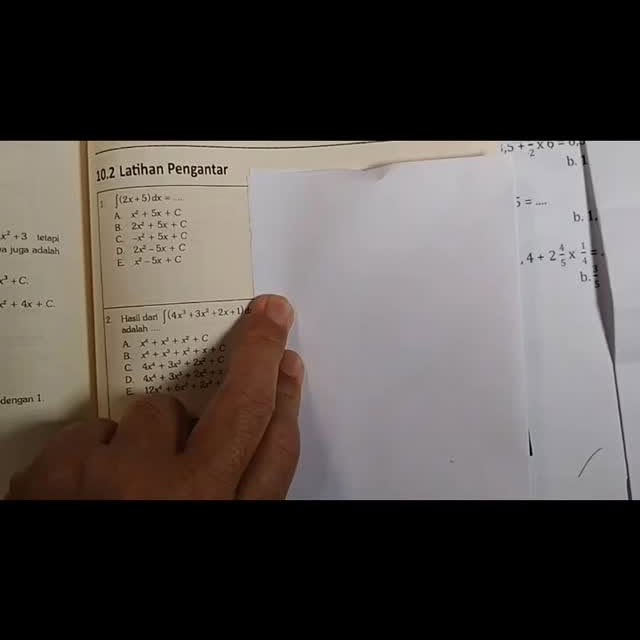 x² + 3 tetapi
a juga adalah
x³ + C.
x² + 4x + C.
dengan 1.
10.2 Latihan Pengantar
1. ∫(2x + 5) dx = ....
A. x² + 5x + C
B. 2x² + 5x + C
C. -x² + 5x + C
D. 2x² − 5x + C
E. x² − 5x + C
2. Hasil dari ∫(4x³ + 3x² + 2x + 1)
adalah ....
A. x⁴ + x³ + x² + C
B. x⁴ + x³ + x² + x + C
C. 4x⁴ + 3x³ + 2x² + C
D. 4x⁴ + 3x³ + 2x² +
E. 12x⁴ + 6x³ + 2x² +
b. 1
5 = ....
b. 1.
4 + 2 4/5 x 1/4 =
b. 3/5